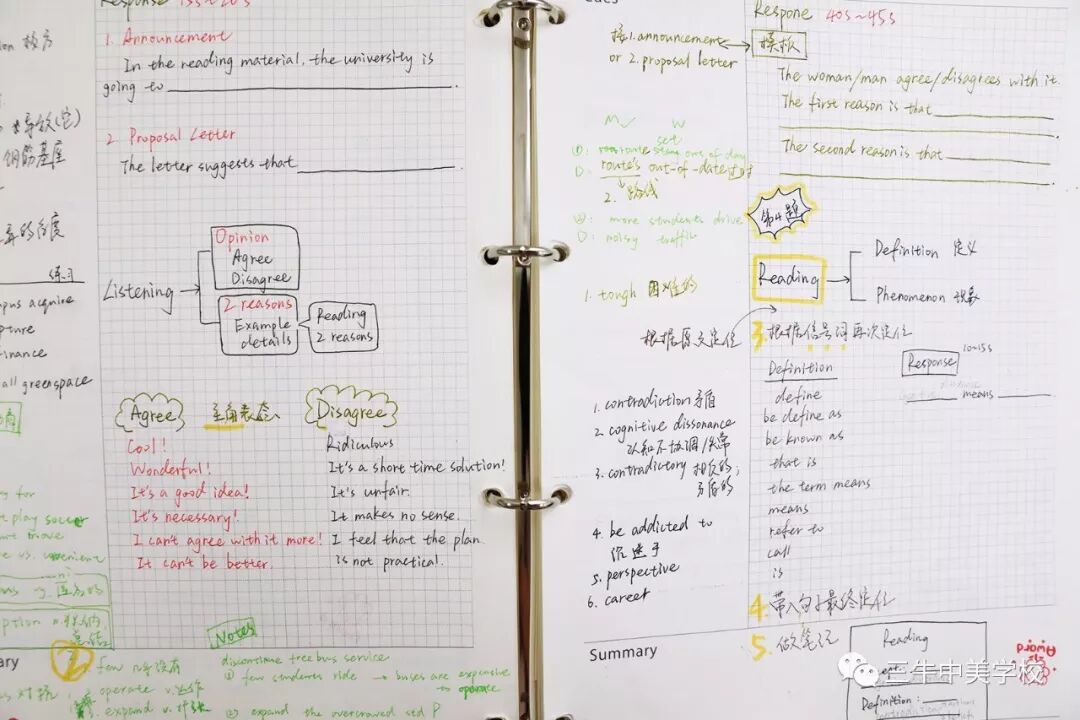 Response 15s~20s
1. Announcement
In the reading material, the university is
going to
2. Proposal Letter
The letter suggests that
Listening
Opinion
Agree
Disagree
2 reasons
Example
details
Reading
2 reasons
Agree
主角表态
Disagree
Cool!
Wonderful!
It's a good idea!
It's necessary!
I can't agree with it more!
It can't be better.
Ridiculous
It's a short time solution!
It's unfair.
It makes no sense.
I feel that the plan
is not practical.
Notes
discontinue free bus service
① few students ride → buses are expensive
→ operate
② expand the overcrowed std P
钢筋基座
练习
acquire
all greenspace
play soccer
move
vs. convenient
2
few 几乎没有
operate v.运作
expand v.扩张
Respone 40s~45s
接1. announcement
or 2. proposal letter
模板
The woman/man agree/disagrees with it.
The first reason is that
The second reason is that
M W
route's out-of-date 过时
2. 路线
②: more students drive
D: noisy traffic
1. tough 困难的
第4题
Reading
Definition 定义
Phenomenon 现象
根据原文定位
3. 根据信号词再次定位
Definition
define
be define as
be known as
that is
the term means
means
refer to
call
is
Response
10~15s
means
1. contradiction 矛盾
2. cognitive dissonance
认知不协调/失常
3. contradictory 相反的;
矛盾的
4. be addicted to
沉迷于
5. perspective
6. career
4. 带入句子最终定位
5. 做笔记
Reading
Definition:
Summary
Award
三牛中美学校